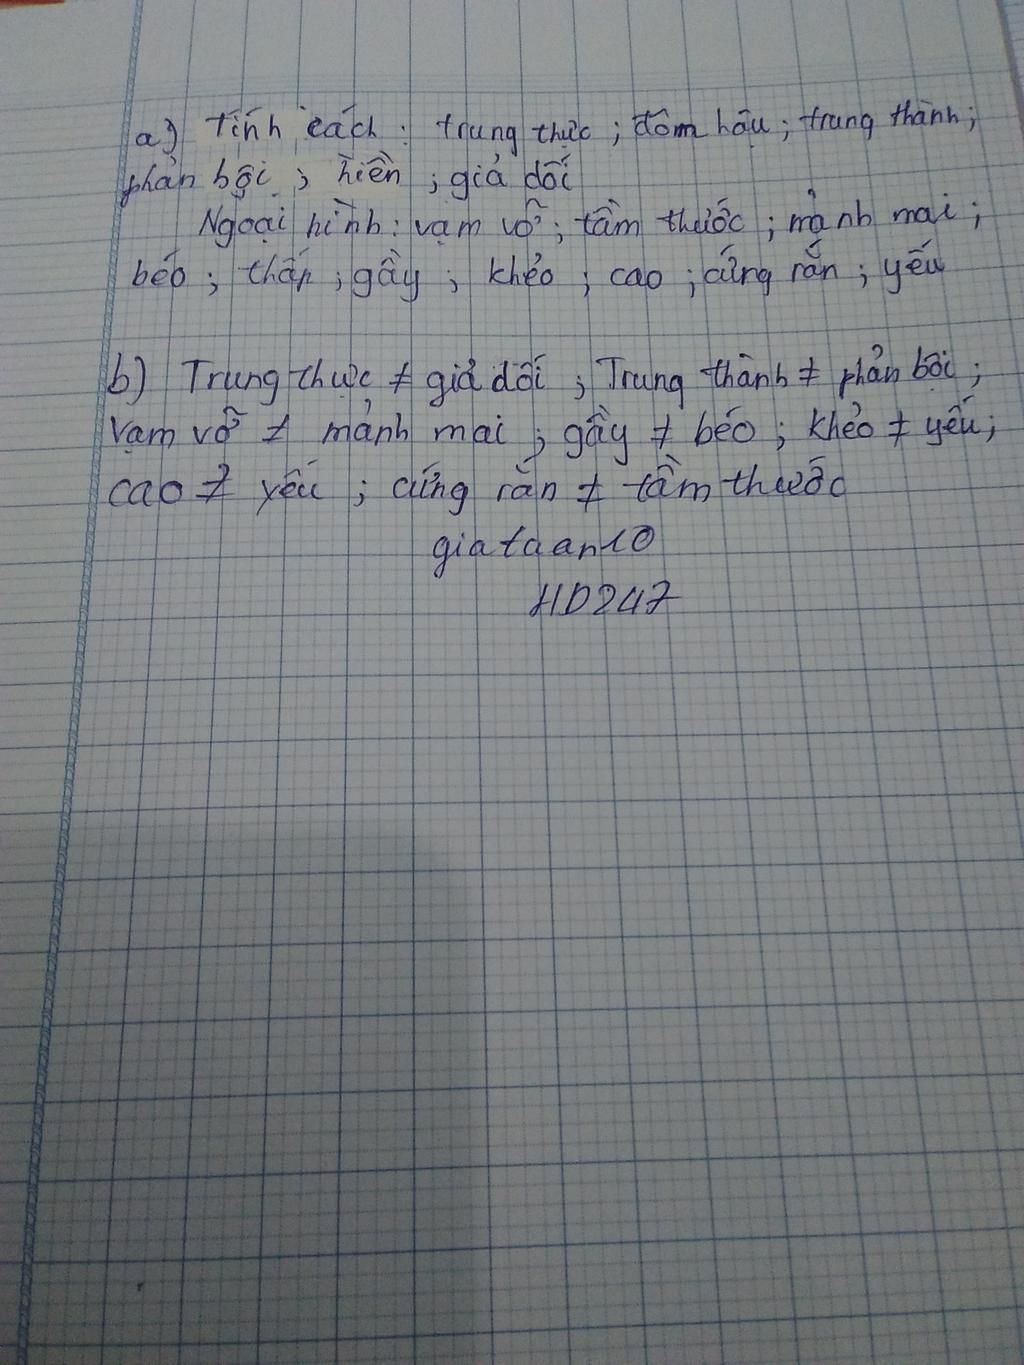 a) Tính cách: trung thực; đôm hậu; trung thành;
phản bội; hiền; giả dối
Ngoại hình: vạm vỡ; tầm thước; mảnh mai;
béo; thấp; gầy; khẻo; cao; cứng rắn; yếu
b) Trung thực ≠ giả dối; Trung thành ≠ phản bội;
Vạm vỡ ≠ mảnh mai; gầy ≠ béo; khẻo ≠ yếu;
cao ≠ yếu; cứng rắn ≠ tầm thước
giataan10
HD247